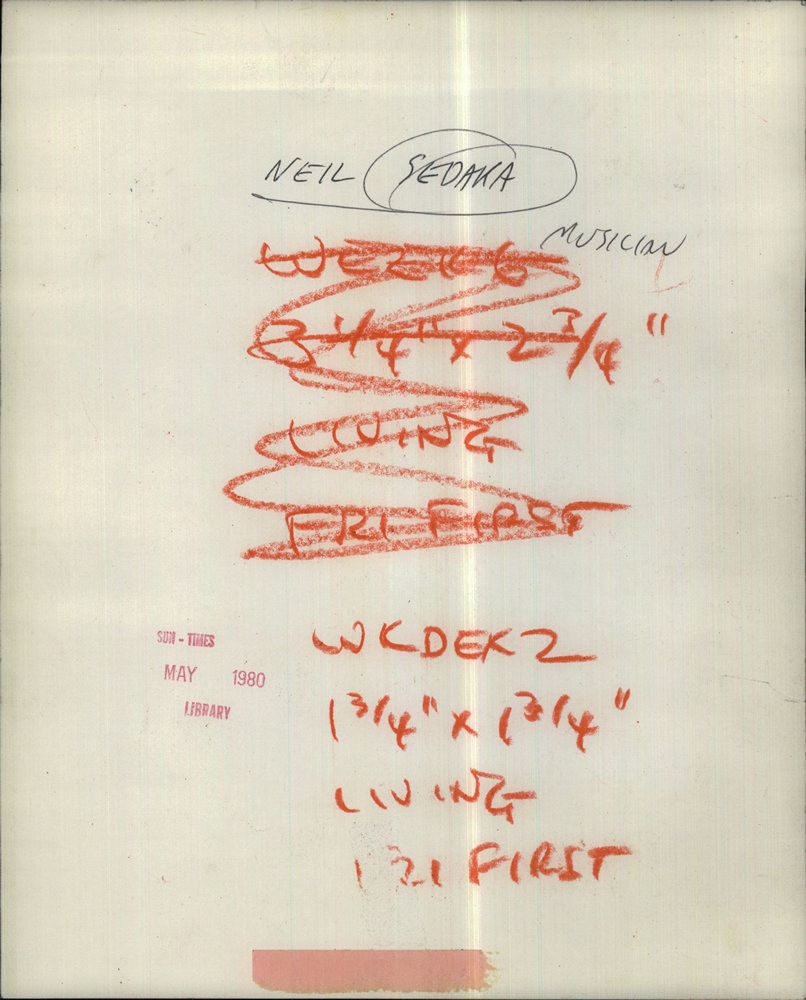 NEIL SEDAKA
MUSICIAN
3 1/4" x 2 3/4"
LIVING
FRI FIRST
SUN-TIMES
MAY 1980
LIBRARY
WKDEK2
1 3/4" x 1 3/4"
LIVING
121 FIRST